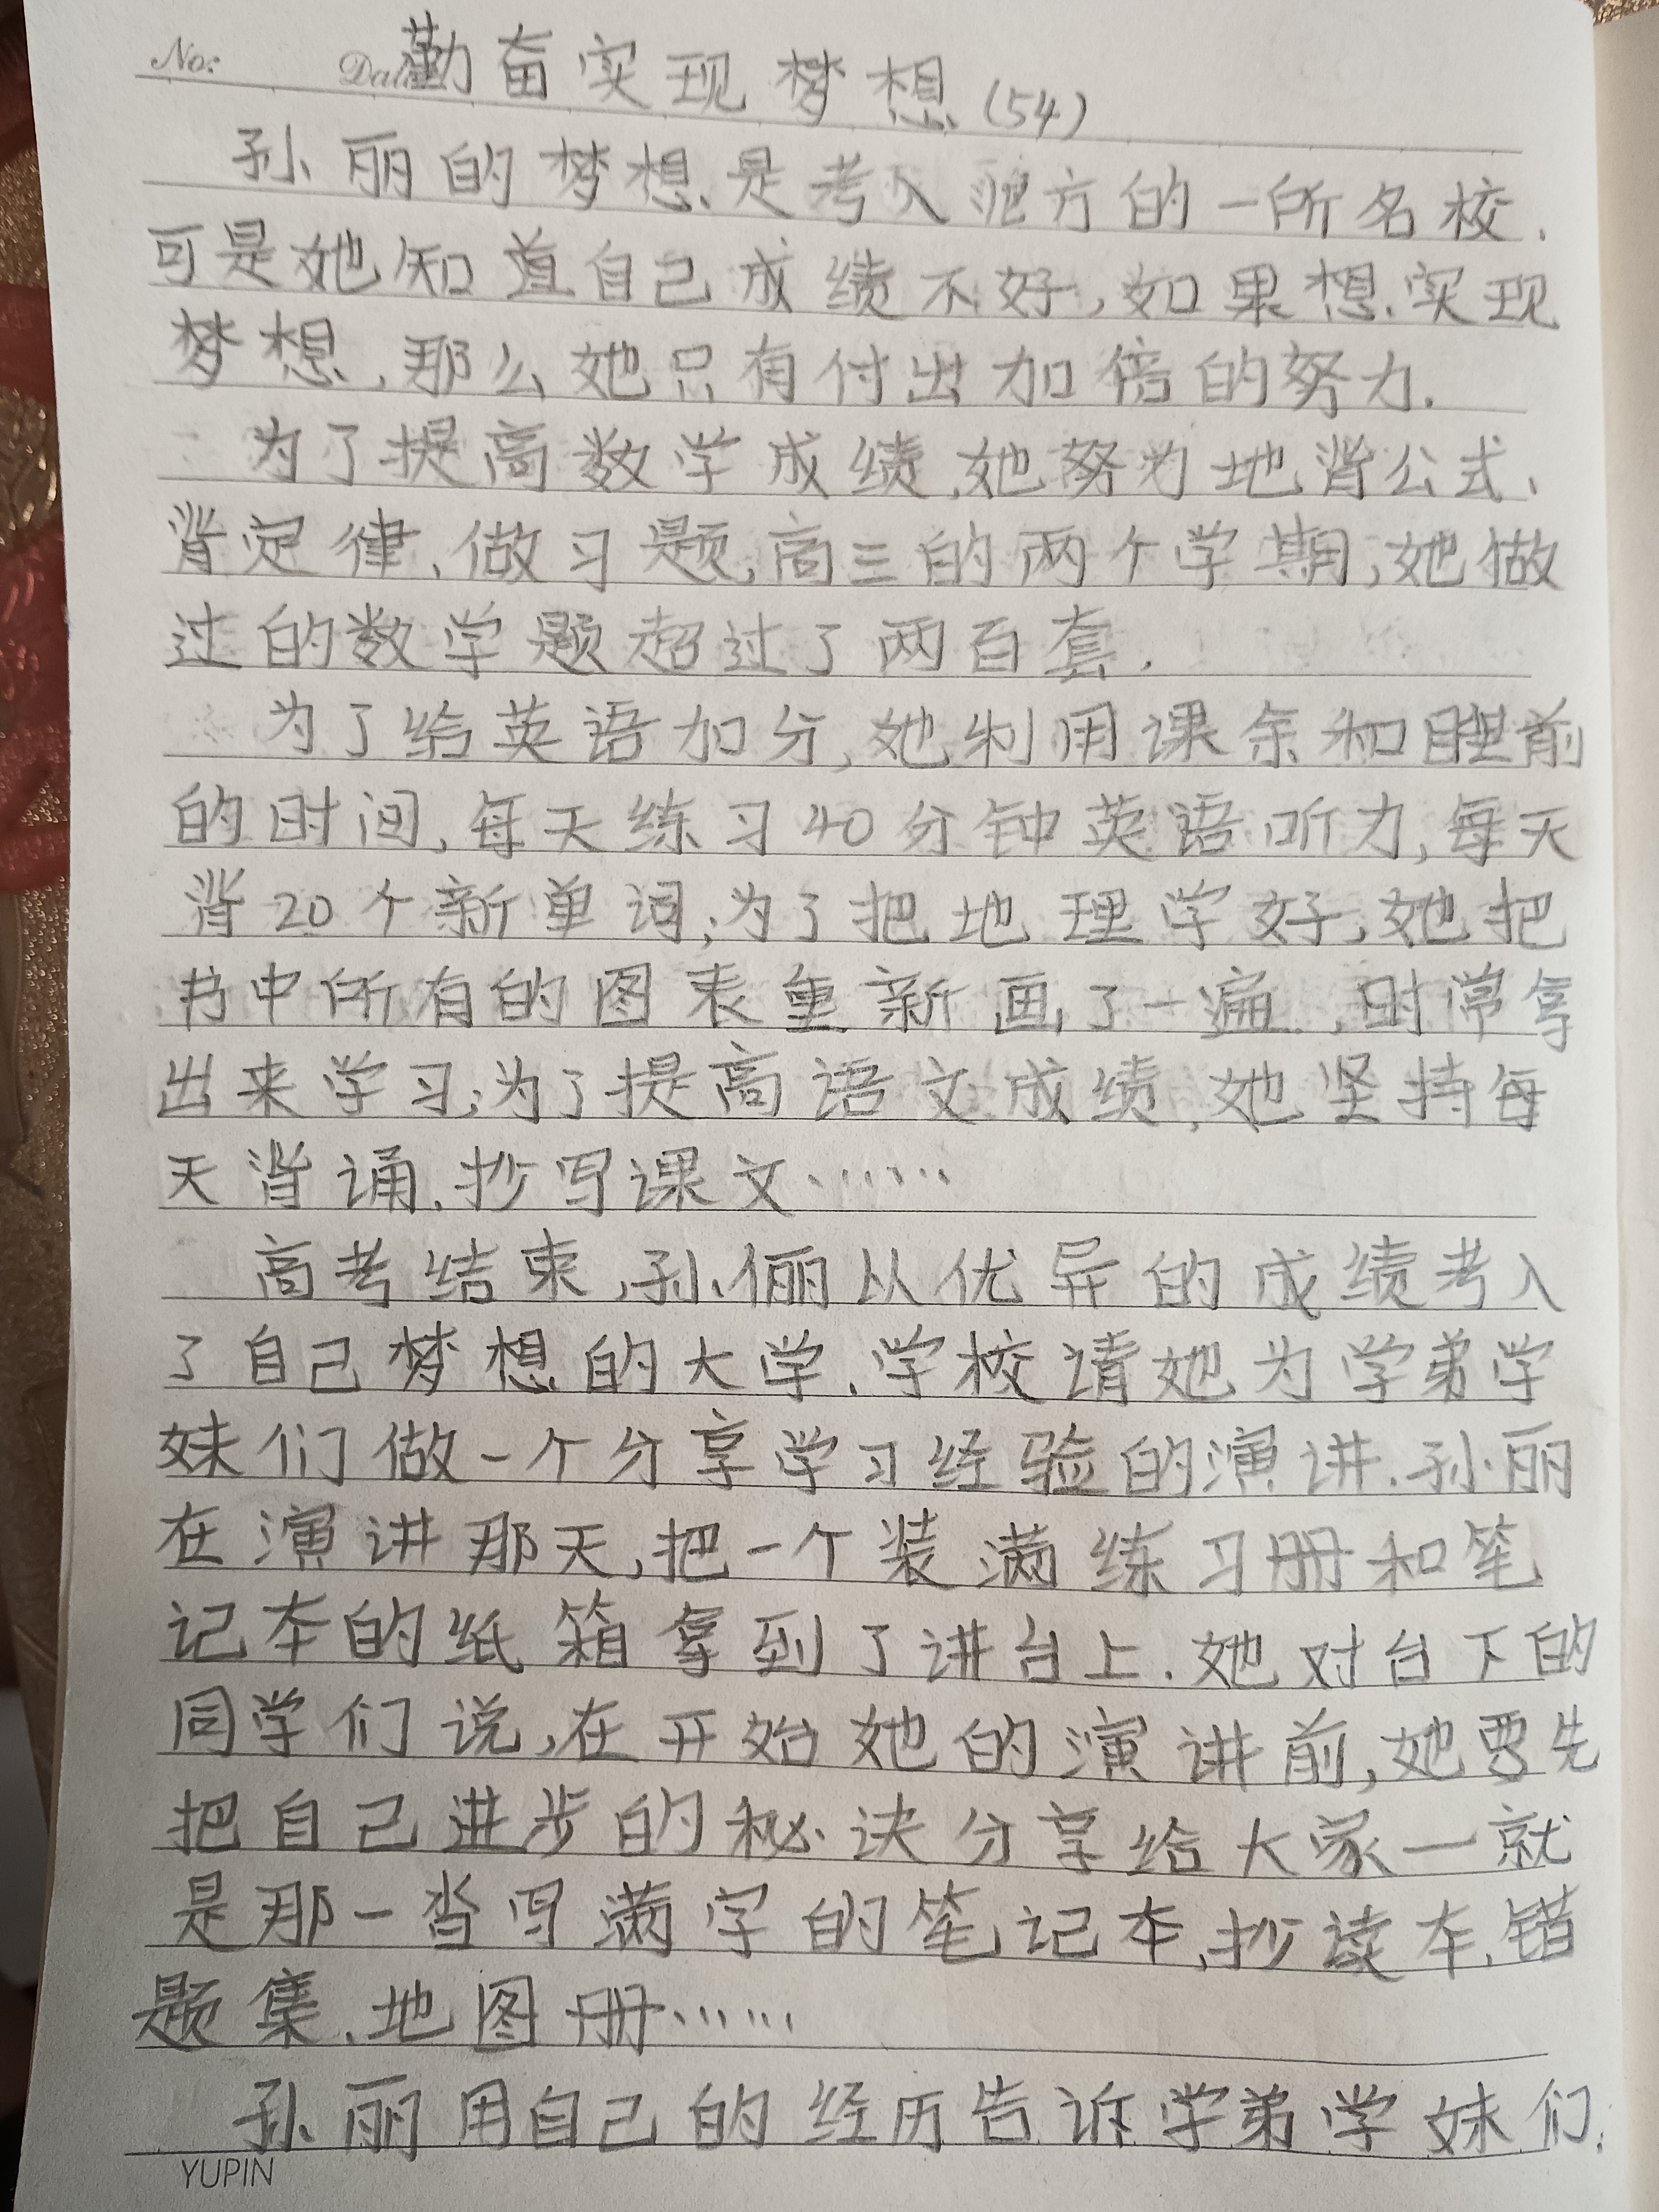 No: Date
勤奋实现梦想(54)
孙丽的梦想是考入 方的一所名校.
可是她知道自己成绩不好,如果想实现
梦想,那么她只有付出加倍的努力.
为了提高数学成绩,她努力地背公式、
背定律、做习题,高三的两个学期,她做
过的数学题超过了两百套.
为了给英语加分,她利用课余和睡前
的时间,每天练习40分钟英语听力,每天
背20个新单词;为了把地理学好,她把
书中所有的图表重新画了一遍,时常拿
出来学习;为了提高语文成绩,她坚持每
天背诵、抄写课文……
高考结束,孙俪从优异的成绩考入
了自己梦想的大学.学校请她为学弟学
妹们做一个分享学习经验的演讲.孙丽
在演讲那天,把一个装满练习册和笔
记本的纸箱拿到了讲台上.她对台下的
同学们说,在开始她的演讲前,她要先
把自己进步的秘诀分享给大家一就
是那一沓写满字的笔记本、抄读本、错
题集、地图册……
孙丽用自己的经历告诉学弟学妹们:
YUPIN